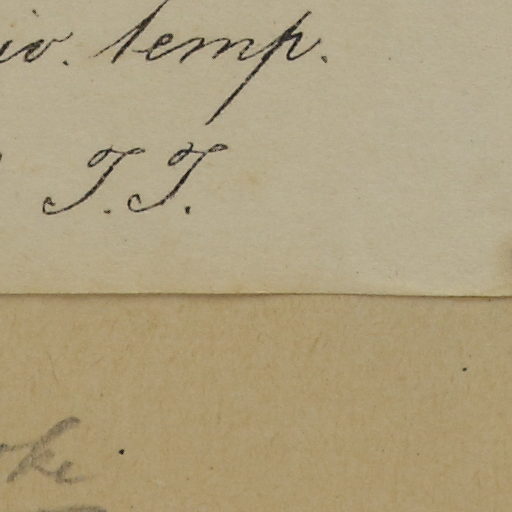 io. temp.
T.T.
ke